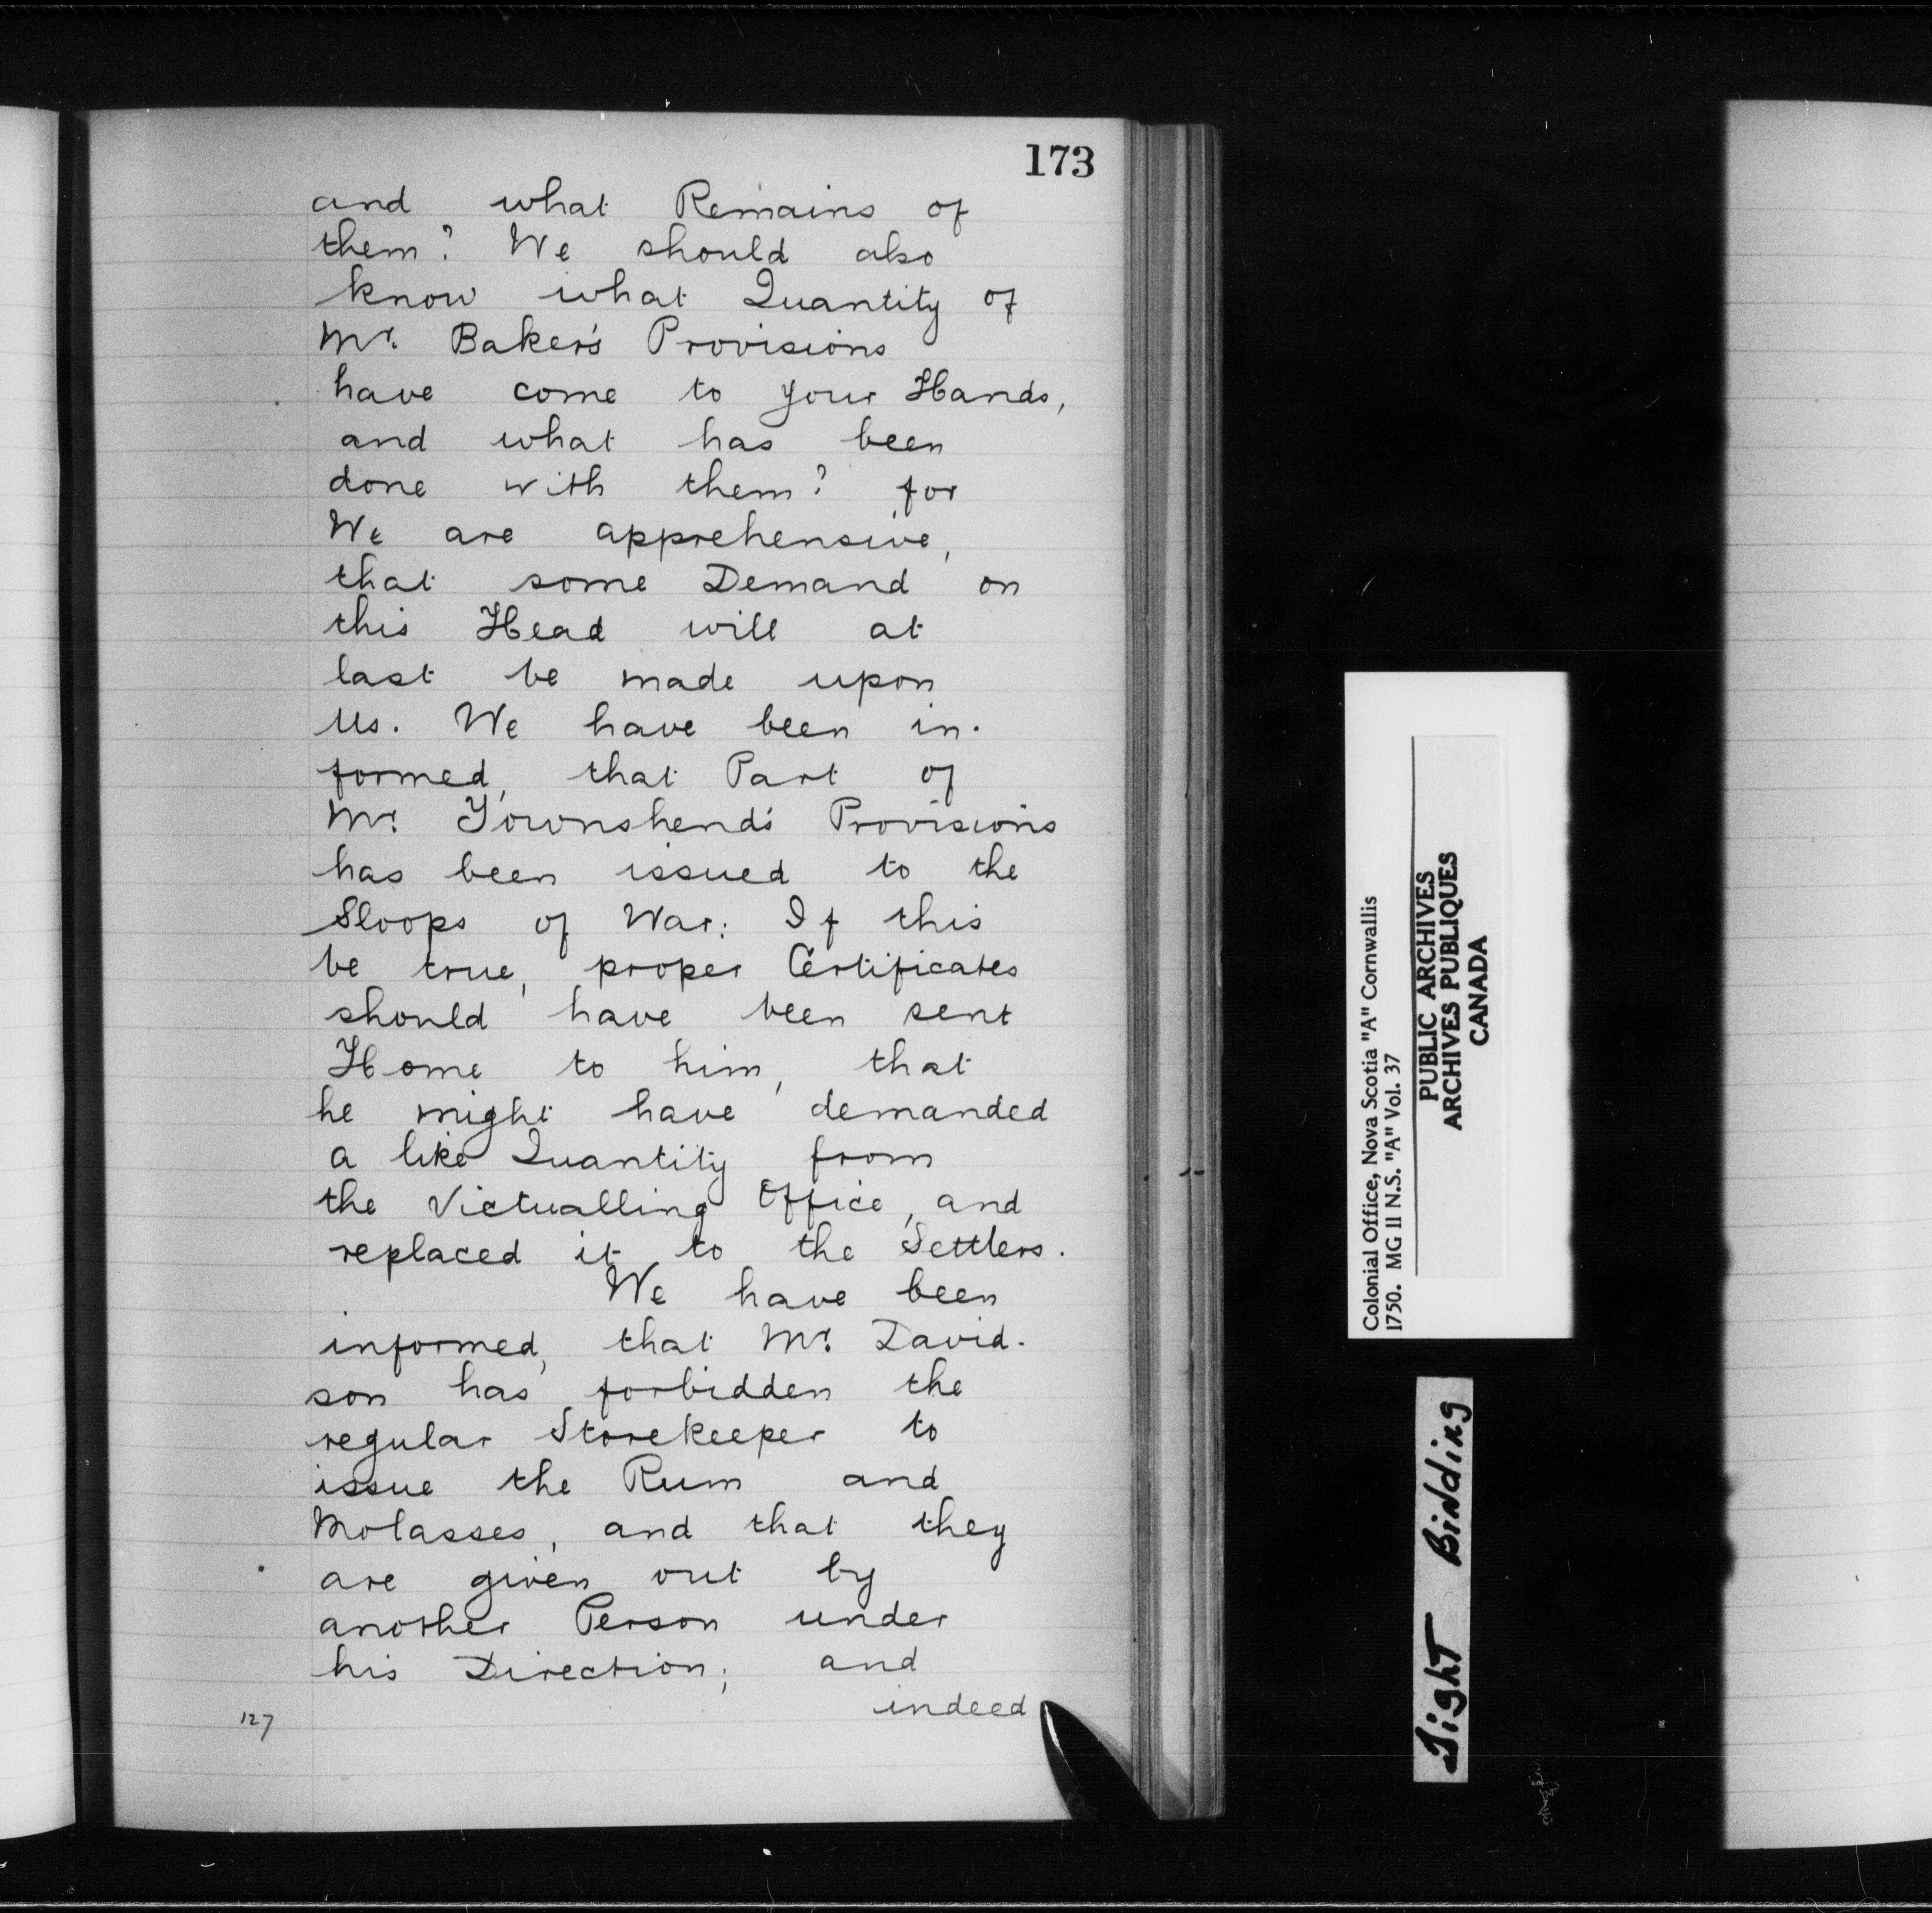 173
and what Remains of
them? We should also
know what Quantity of
Mr. Baker's Provisions
have come to your Hands,
and what has been
done with them? for
We are apprehensive,
that some Demand on
this Head will at
last be made upon
us. We have been in-
formed, that Part of
Mr. Townshend's Provisions
has been issued to the
Sloops of War: If this
be true, proper Certificates
should have been sent
Home to him, that
he might have demanded
a like Quantity from
the Victualling Office, and
replaced it to the Settlers.
We have been
informed, that Mr. David-
son has forbidden the
regular Storekeeper to
issue the Rum and
Molasses, and that they
are given out by
another Person under
his Direction; and
indeed
127
Colonial Office, Nova Scotia "A" Cornwallis
1750. MG 11 N.S. "A" Vol. 37
PUBLIC ARCHIVES
ARCHIVES PUBLIQUES
CANADA
Tight Binding